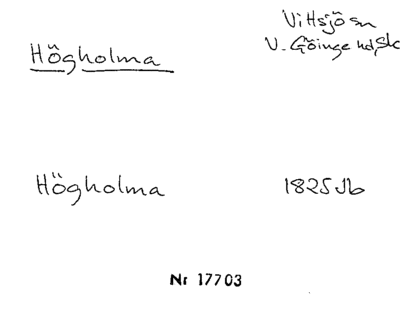 Vittsjö sn
Högholma
V. Göinge hd, Sk
Högholma 1825 Jb
Nr 17703